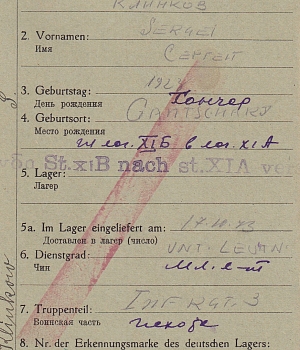 КЛИНКОВ
2. Vornamen: SERGEI
Имя СЕРГЕЙ
3. Geburtstag: 192
День рождения Гончар
4. Geburtsort: GANTSCHARY
Место рождения
из лаг. XIБ в лаг. XIA
St.XIB nach st.XIA ver
5. Lager:
Лагер
5a. Im Lager eingeliefert am: 17.10.43
Доставлен в лагер (число)
6. Dienstgrad: UNT. LEUTN.
Чин мл. л-т
7. Truppenteil: INF RGT. 3
Воинская часть пехота
8. Nr. der Erkennungsmarke des deutschen Lagers:
Klinkow